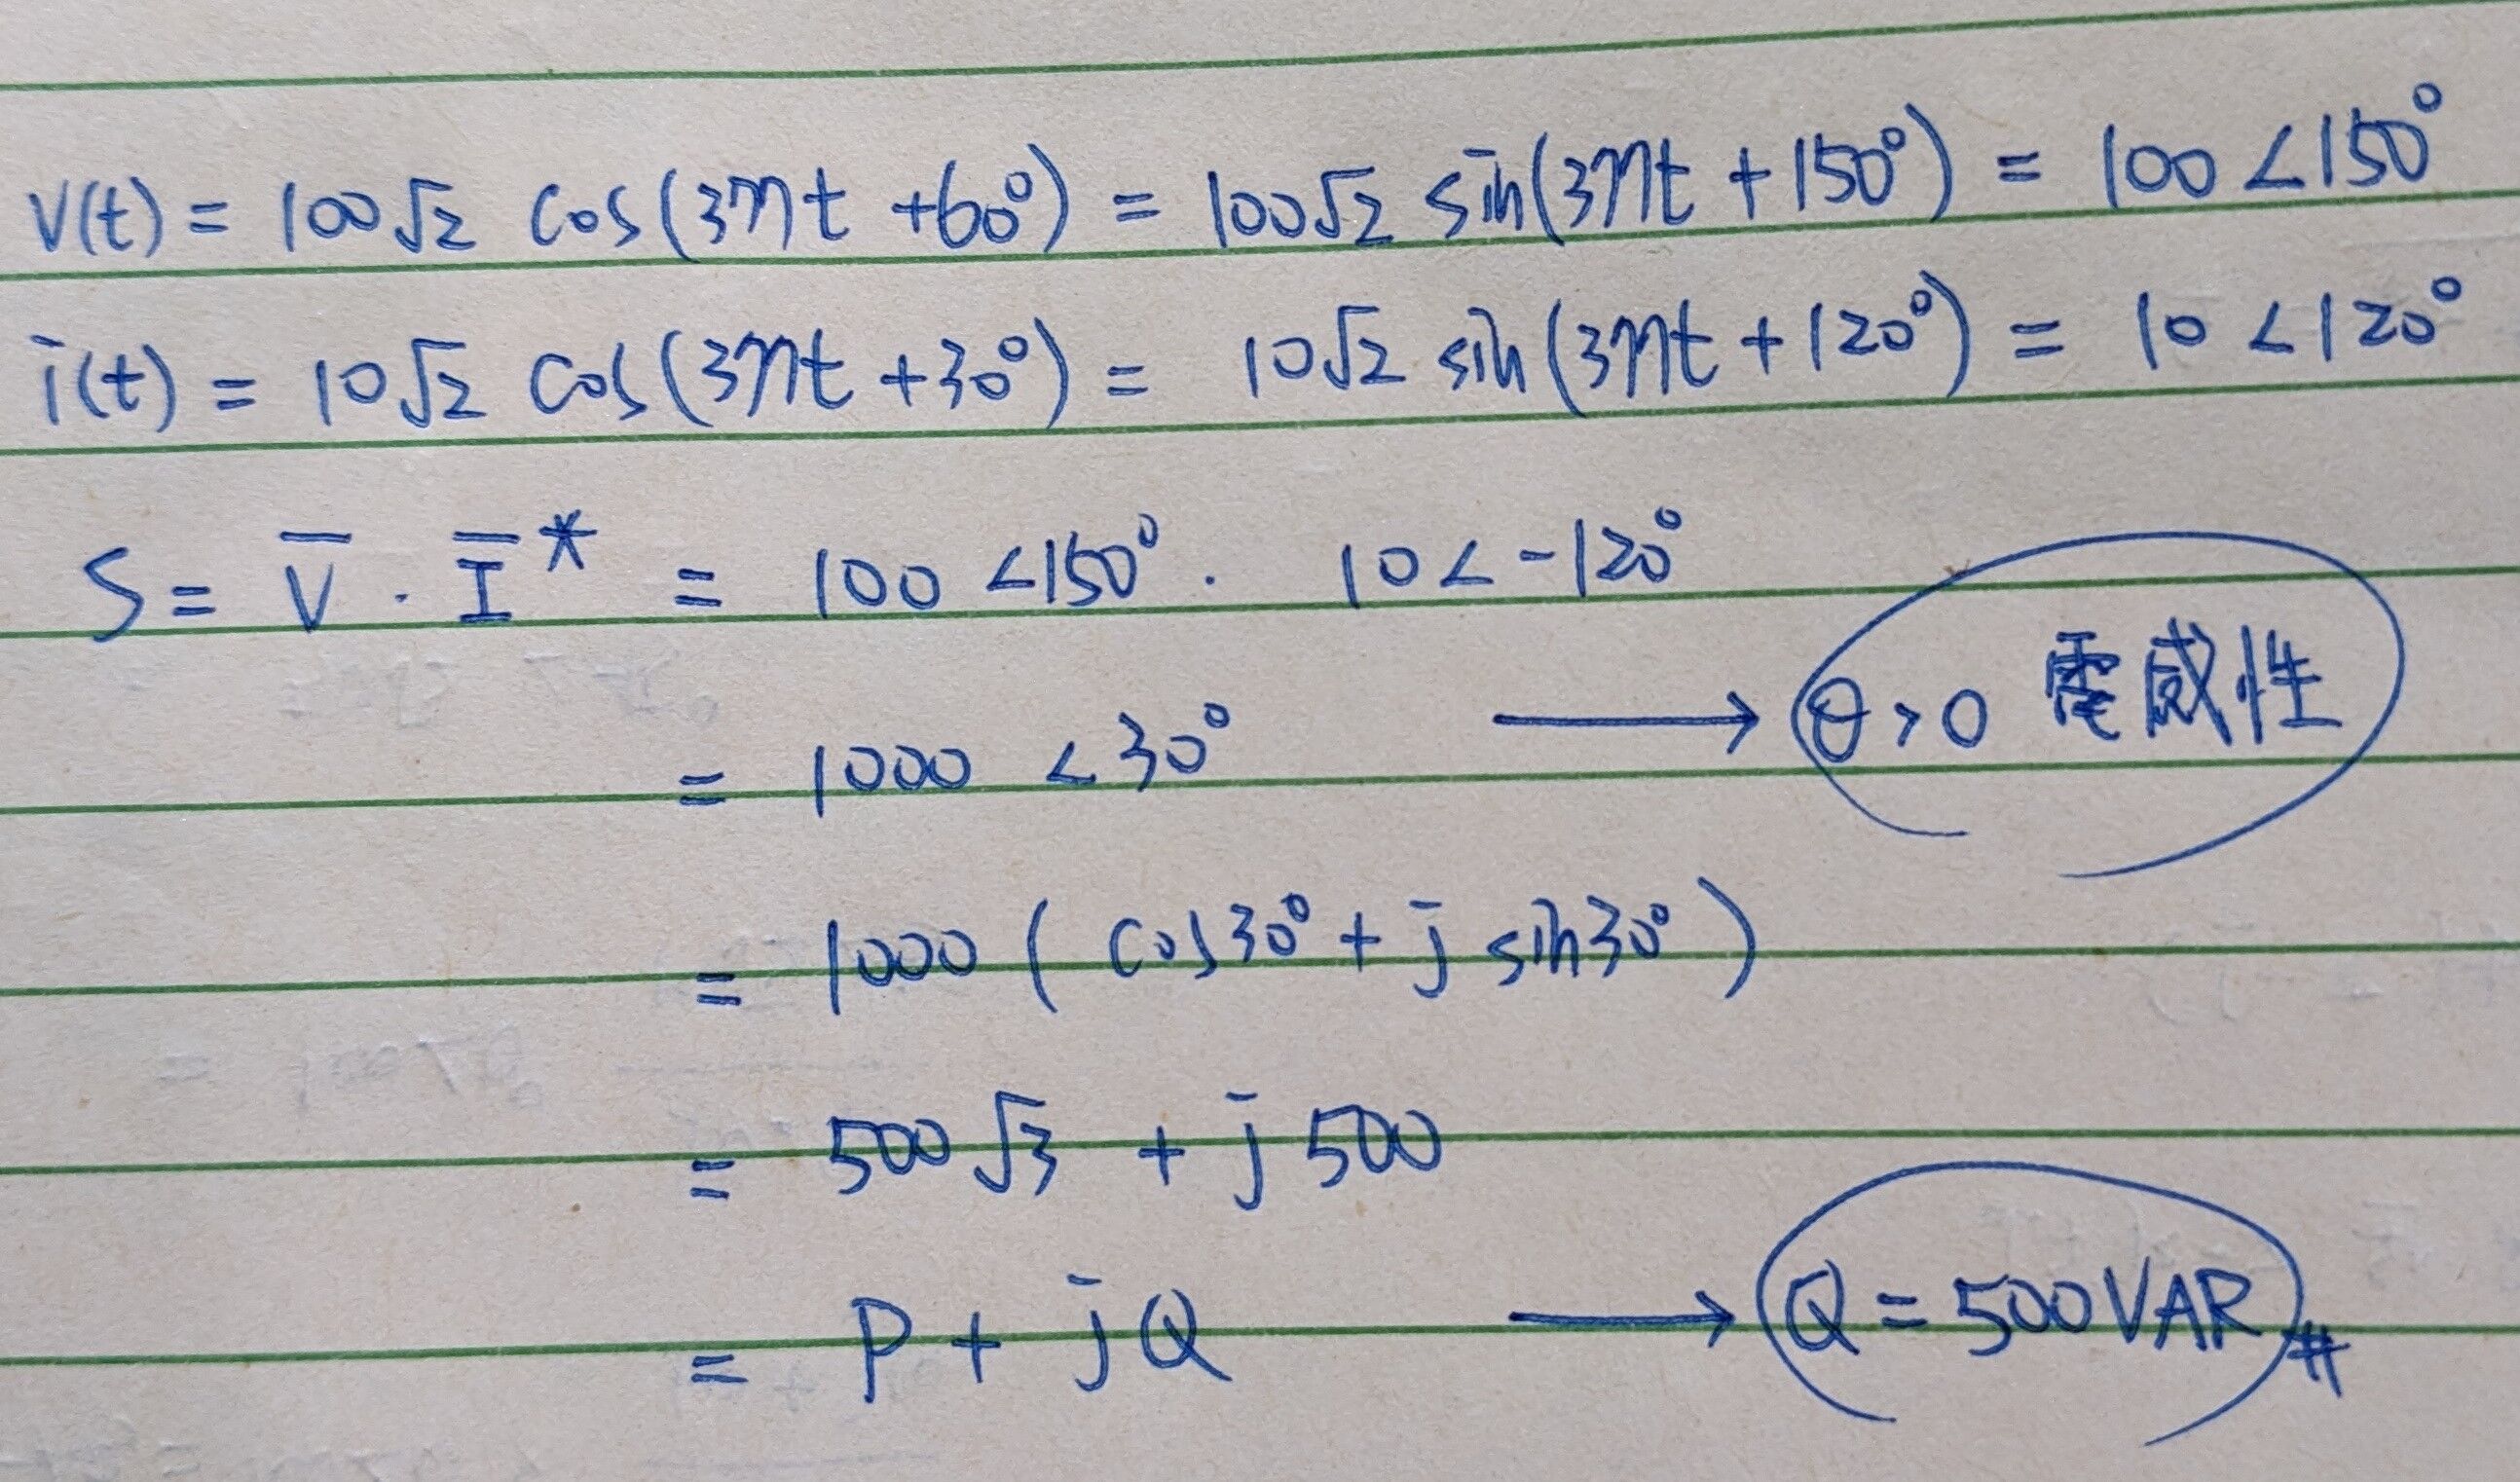 V(t) = 100√2 cos(377t +60°) = 100√2 sin(377t +150°) = 100 ∠150°
i(t) = 10√2 cos(377t +30°) = 10√2 sin(377t +120°) = 10 ∠120°
S = V̅ · I̅* = 100 ∠150° · 10∠-120°
= 1000 ∠30° → θ>0 電感性
= 1000 ( cos30° + j sin30° )
= 500√3 + j 500
= P + jQ → Q = 500VAR #